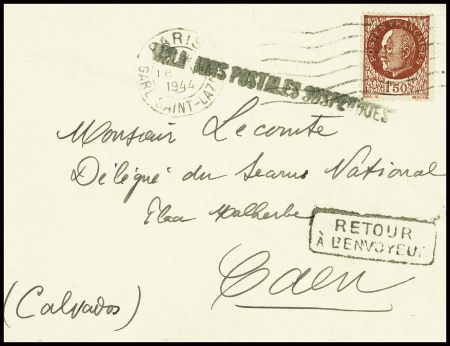 PARIS
GARE SAINT-LAZ
1944
RELATIONS POSTALES SUSPENDUES
POSTES FRANÇAISES
1F50
Monsieur Lecomte
Délégué du Secours National
Place Malherbe
RETOUR
À L'ENVOYEUR
Caen
(Calvados)